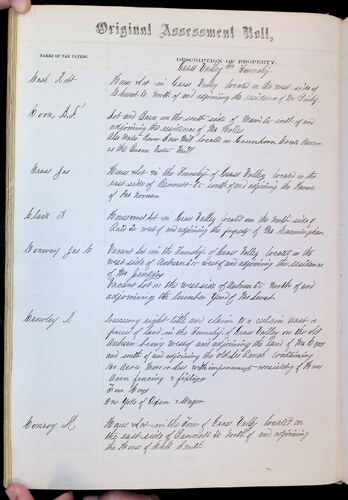 Original Assessment Roll,
NAMES OF TAX PAYERS.
DESCRIPTION OF PROPERTY.
Grass Valley Township
Cash Robt
House Lot in Grass Valley located in the west side of
School St North of and adjoining the residence of Mr
Cook, D.F.
Lot and Barn on the south side of Main St east of and
adjoining the residence of Mr
Also Water Power Saw Mill located in Greenhorn Creek known
as the Mill
Crase Jas
House Lot in the Township of Grass Valley located in the
east side of Bennett St south of and adjoining the House
of Jas
Clark J
House and Lot in Grass Valley located on the north side of
Main St west of and adjoining the property of Mr Cunningham
Conway Jas C
Vacant Lot in the Township of Grass Valley located on the
west side of Auburn St west of and adjoining the residence
of Mr
Vacant Lot on the west side of Auburn St North of and
adjoining the Lumber Yard of
Crowley D
Possessory right title and claim to a certain tract or
parcel of land in the Township of Grass Valley on the old
Auburn being west of and adjoining the land of Mr
and south of and adjoining the old Ranch containing
acres more or less with improvements consisting of House
Barn fencing & fixtures
Cows
One Yoke of Oxen & Wagon
Conroy
House & Lot in the Town of Grass Valley located on
the east side of Bennett St North of and adjoining
the House of Smith